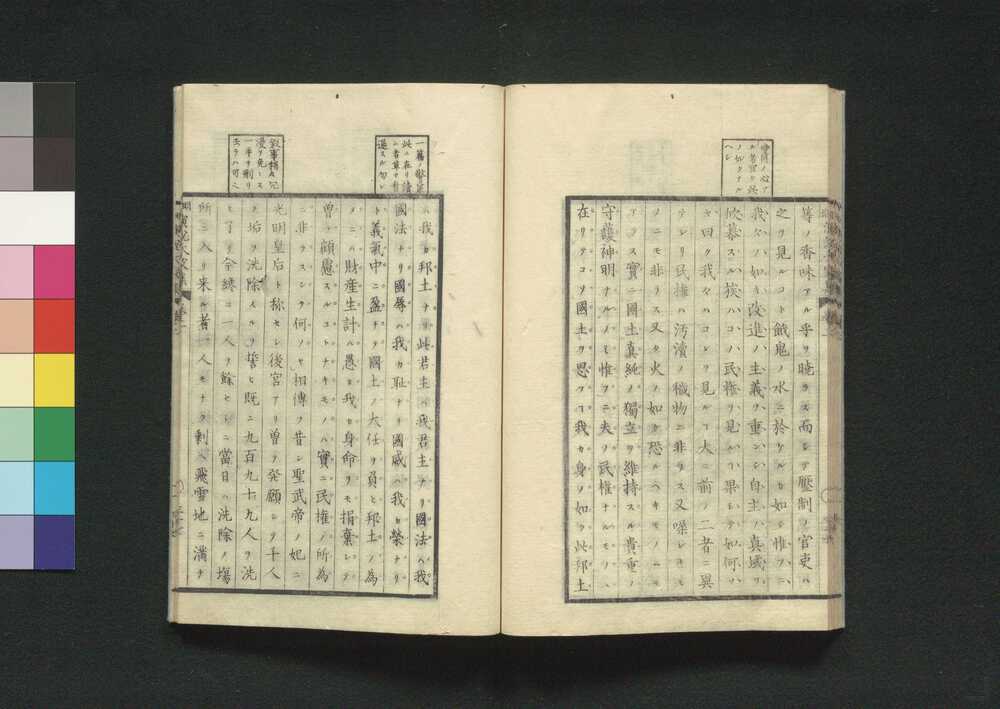 等ノ香味アル乎ヲ暁ラス而シテ壓制ノ官吏ハ
之ヲ見ルコト餓鬼ノ水ニ於ケルカ如シ惟フニ
我々ノ如キ改進ノ主義ヲ重ンシ自主ノ真域ヲ
欣慕スル族ハコノ民権ヲ見ルコト果シテ如何ソ
曰ク我々ハコレヲ見ルコト大ニ前ノ二者ニ異
ナレリ民権ハ汚瀆ノ穢物ニ非ラス又噪シキモ
ノニモ非ラス又タ火ノ如ク恐ルヘキモノニモ
アラス實ニ國土真純ノ獨立ヲ維持スル貴重ノ
守護神明ナルノミ惟フニ夫ノ民権ナルモノハ
在リテコソ國土ヲ思フコト我カ身ノ如ク此邦土
ハ我カ邦土ナリ此君主ハ我君主ナリ國法ハ我
國法ナリ國辱ハ我カ恥ナリ國威ハ我カ榮ナリ
ト義氣中ニ盈チ國土ノ大任ヲ負ヒ邦土ノ為
メニハ財産生計ハ愚モ我カ身命ヲモ捐棄シテ
曽テ顧慮スルコトナキモノハ實ニ民権ノ所為
ニ非ラスシテ何ノソヤ相傳フ昔シ聖武帝ノ妃ニ
光明皇后ト称セシ後宮アリ曽ヲ発願シテ千人
ノ垢ヲ洗除スルヲ誓ヒ既ニ九百九十九人ヲ洗
ヒ了リ今纔ニ一人ヲ餘セリニ當日ハ洗除ノ場
所ニ入リ来ル者一人モナク剰ヘ飛雪地ニ満チ